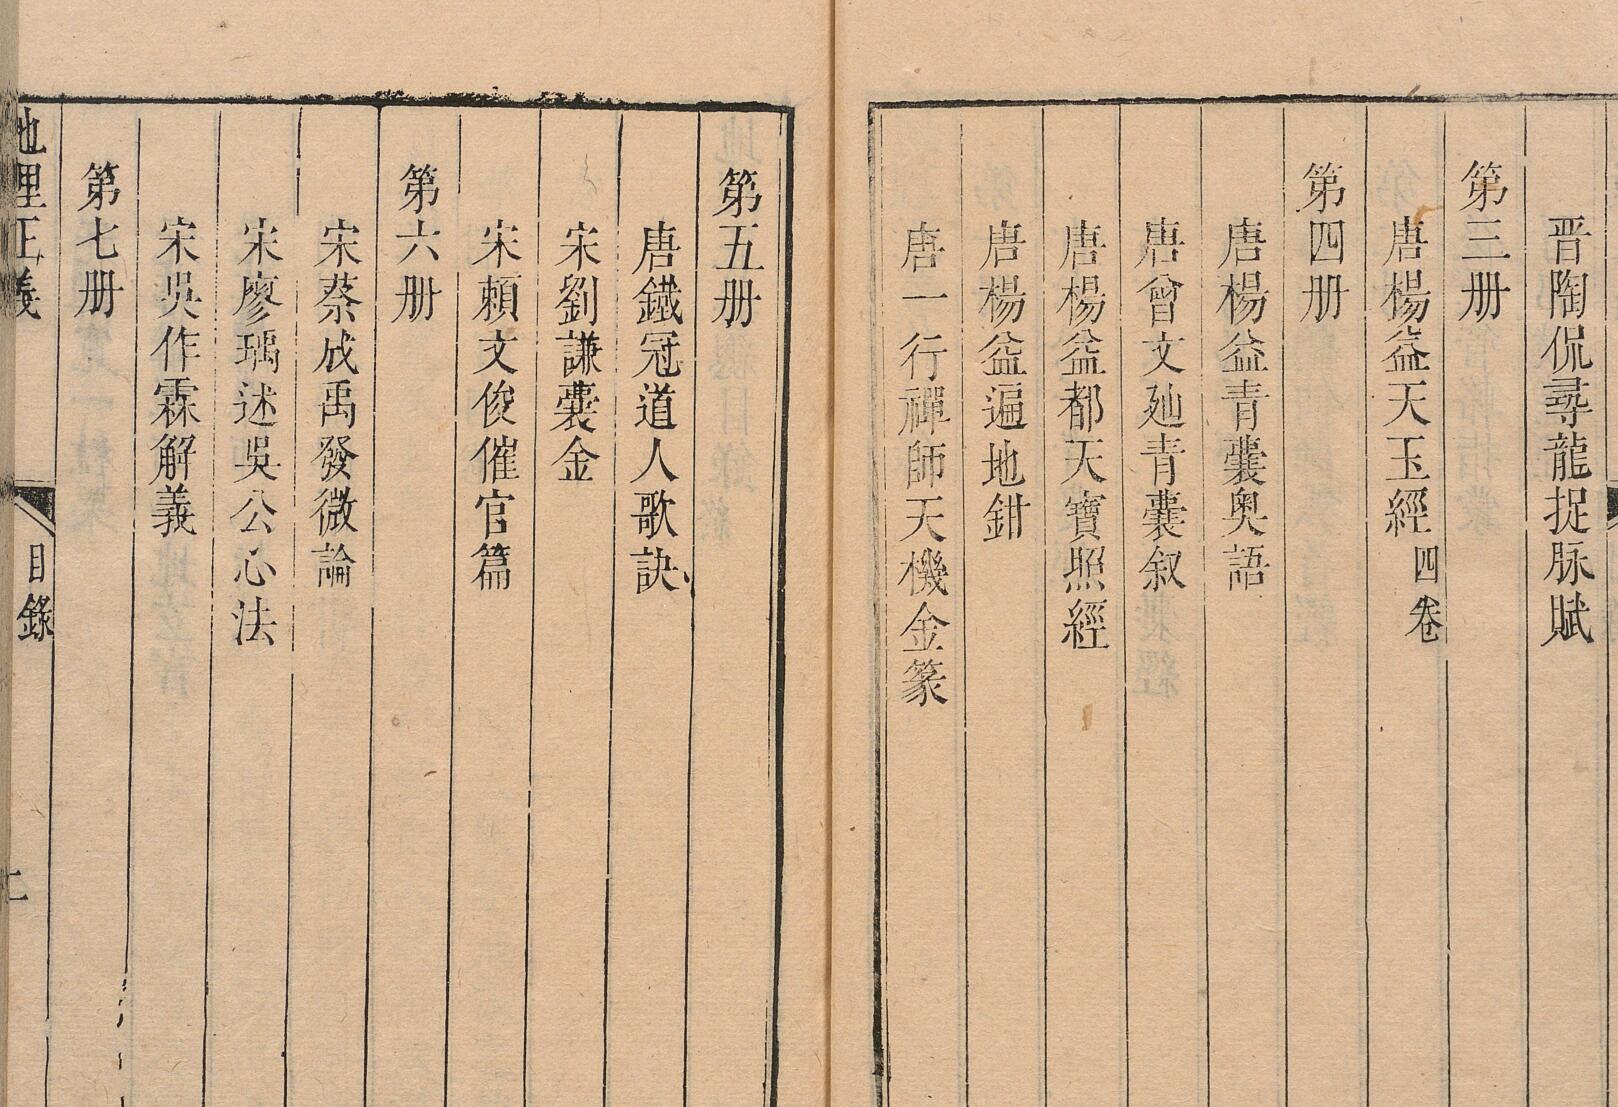 晋陶侃尋龍捉脉賦
第三册
唐楊益天玉經四卷
第四册
唐楊益青囊奥語
唐曾文辿青囊叙
唐楊益都天寶照經
唐楊益遍地鉗
唐一行禪師天機金篆
第五册
唐鐵冠道人歌訣
宋劉謙囊金
宋賴文俊催官篇
第六册
宋蔡成禹發微論
宋廖瑀述吳公心法
宋吳作霖解義
第七册
地理正義
目錄
二